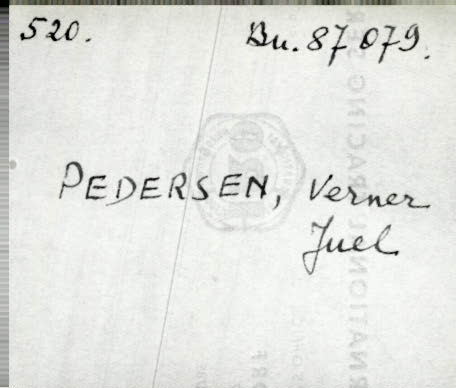 520.
Bu. 87 079.
PEDERSEN, Verner
Juel